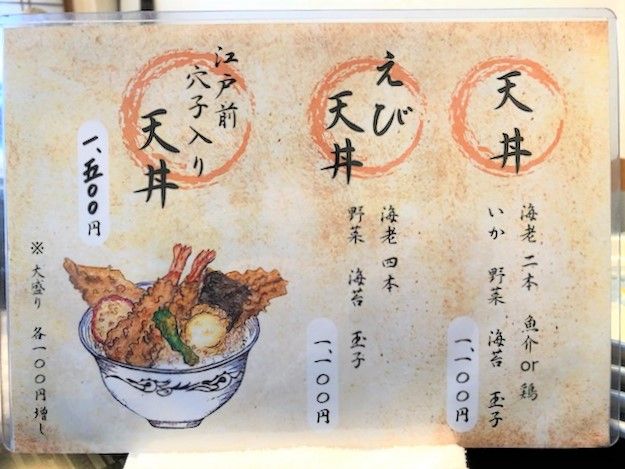 天丼
海老 二本 魚介or鶏
いか 野菜 海苔 玉子
一、一〇〇円
えび
天丼
海老 四本
野菜 海苔 玉子
一、一〇〇円
江戸前
穴子入り
天丼
一、五〇〇円
※ 大盛り 各一〇〇円増し